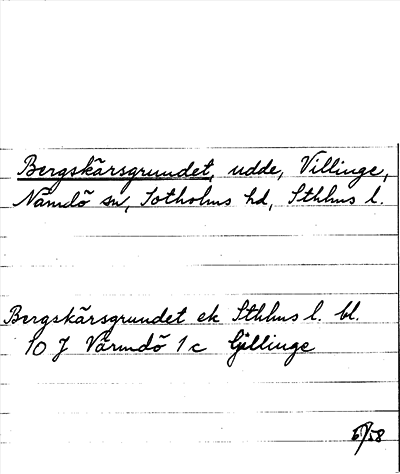 Bergskärsgrundet, udde, Villinge,
Nämdö sn, Sotholms hd, Sthlms l.
Bergskärsgrundet ek Sthlms l. bl.
10 J Värmdö 1c Gillinge
58